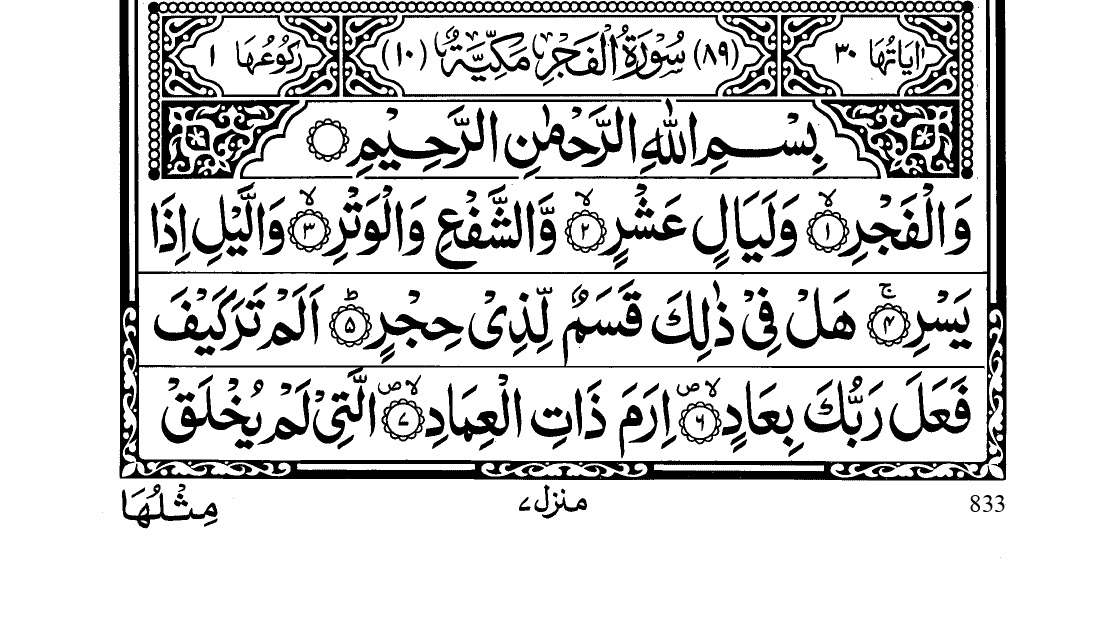 اٰيَاتُهَا ٣٠ (٨٩) سُوْرَةُ الْفَجْرِ مَكِّيَّةٌ (١٠) رُكُوْعُهَا ١
بِسْمِ اللّٰهِ الرَّحْمٰنِ الرَّحِيْمِ
وَالْفَجْرِ ۙ﴿١﴾ وَلَيَالٍ عَشْرٍ ۙ﴿٢﴾ وَّالشَّفْعِ وَالْوَتْرِ ۙ﴿٣﴾ وَالَّيْلِ اِذَا
يَسْرِ ۚ﴿٤﴾ هَلْ فِيْ ذٰلِكَ قَسَمٌ لِّذِيْ حِجْرٍ ؕ﴿٥﴾ اَلَمْ تَرَ كَيْفَ
فَعَلَ رَبُّكَ بِعَادٍ ۪ۙ﴿٦﴾ اِرَمَ ذَاتِ الْعِمَادِ ۪ۙ﴿٧﴾ الَّتِيْ لَمْ يُخْلَقْ
مِثْلُهَا منزل ٧ 833